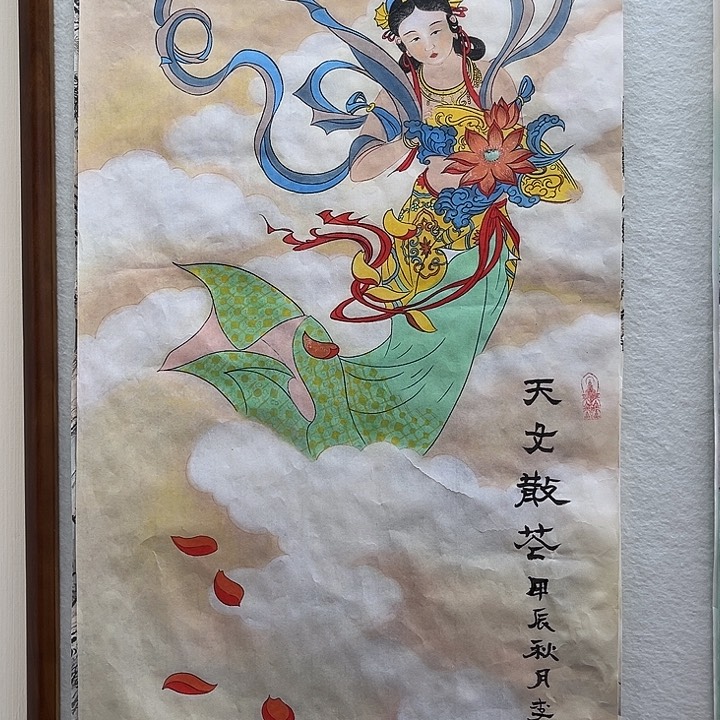 天女散花甲辰秋月李